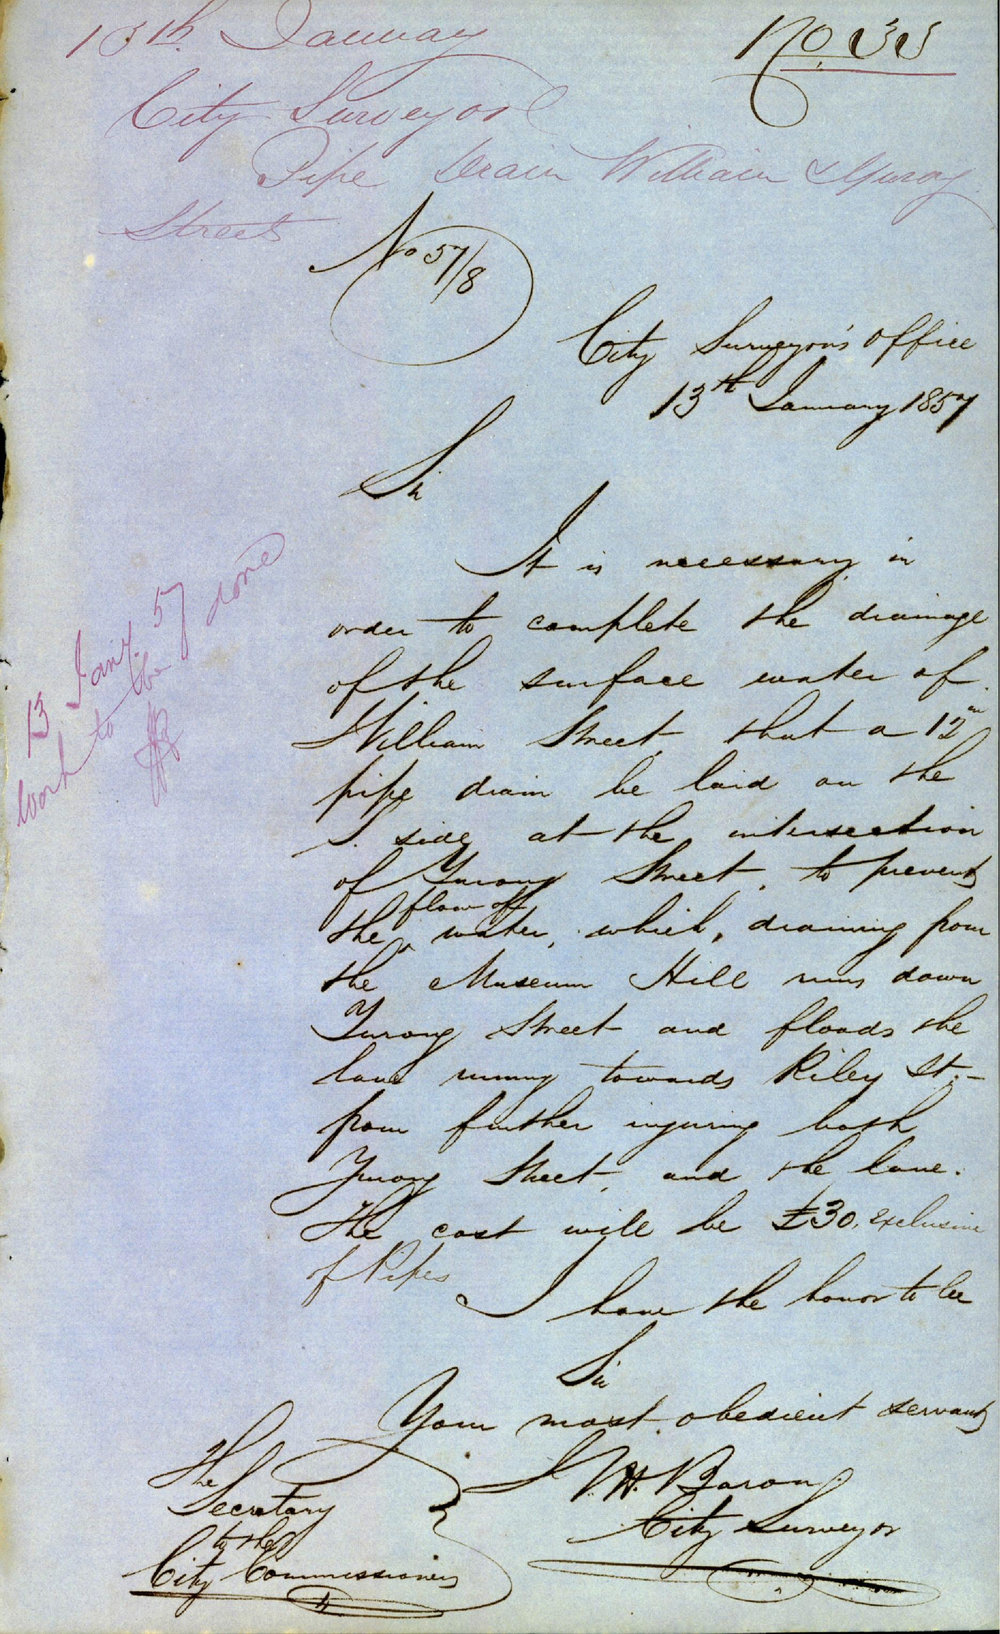 13th January
No. 33
City Surveyor
Pipe Drain William & Yurong
Street
No 57/8
City Surveyor's Office
13th January 1857
Sir
It is necessary in
order to complete the drainage
of the surface water of
William Street, that a 12in
pipe drain be laid on the
S. side at the intersection
of Yurong Street, to prevent
flow of
the water, which, draining from
the Museum Hill runs down
Yurong Street and floods the
lane running towards Riley St.-
from further injuring both
Yurong Street, and the lane.
The cost will be £30, exclusive
of Pipes
I have the honor to be
Sir
Your most obedient servant
Baron
City Surveyor
The
Secretary
to the
City Commissioners
13 Jany. 57
Work to be done